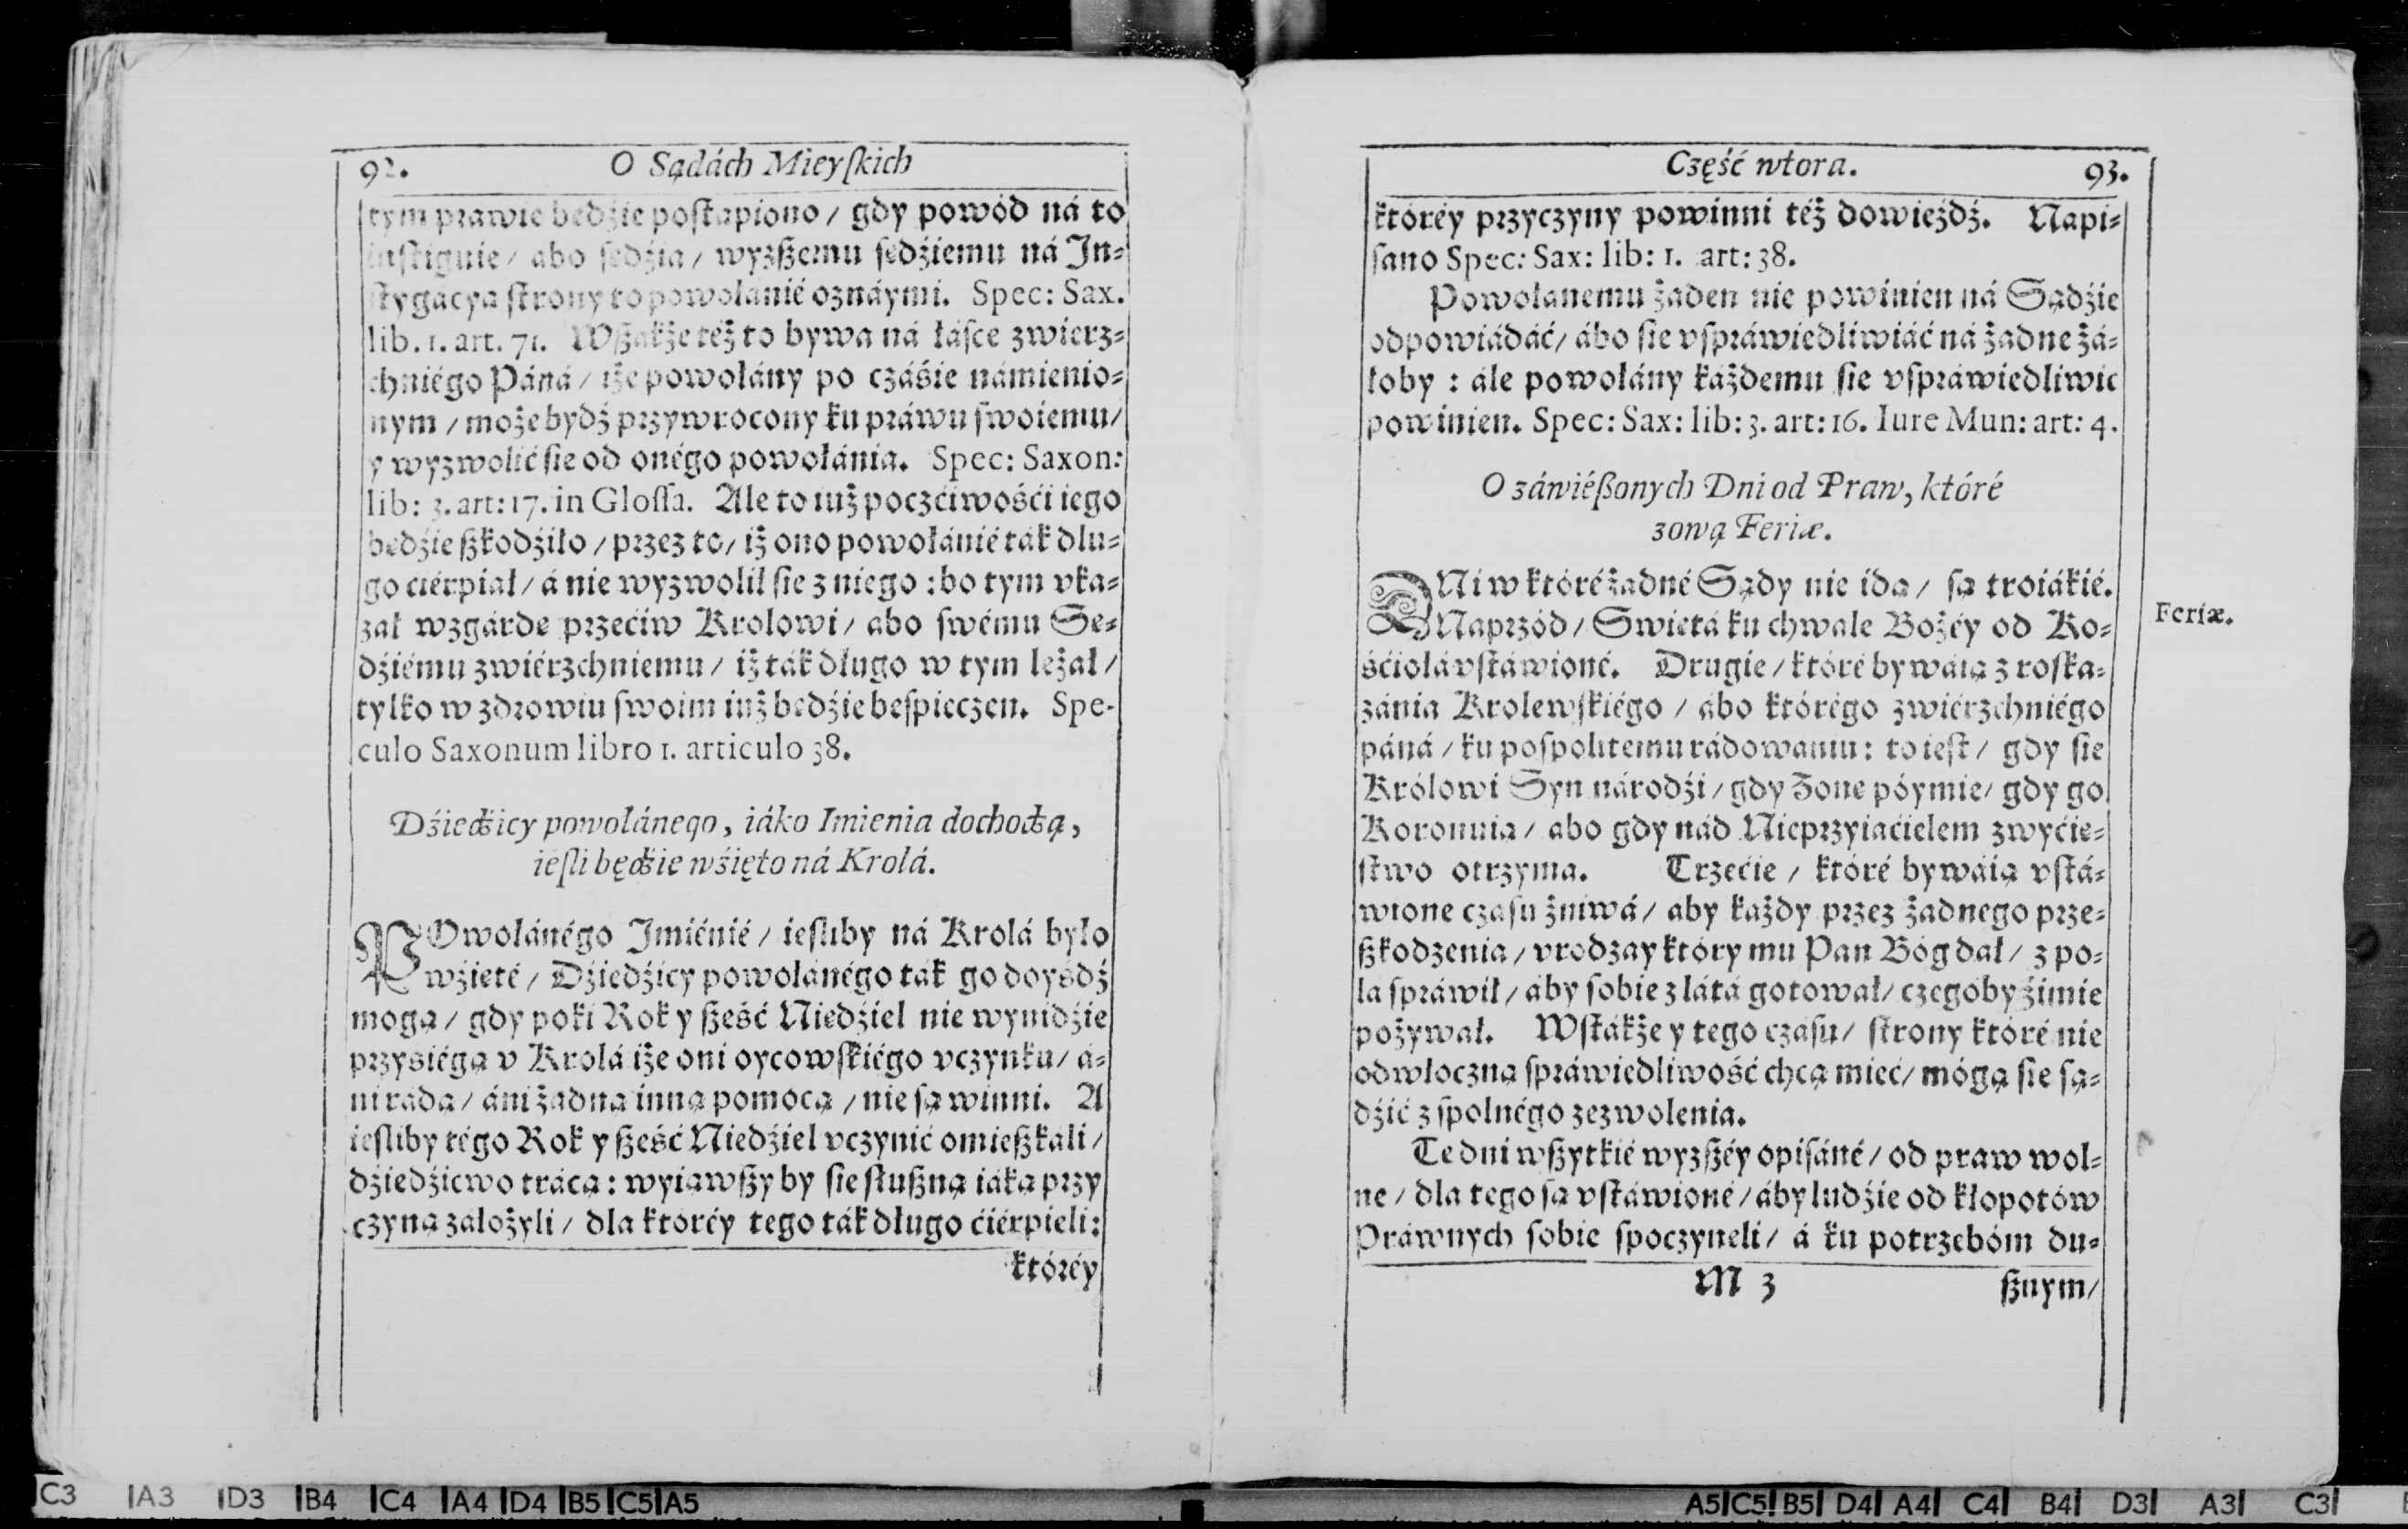 92. O Sądách Mieyſkich
tym prawie bedźie poſtapiono / gdy powód ná to
inſtiguie / abo ſedźia / wyzßemu ſedźiemu ná In⸗
ſtygácya ſtrony to powołanié oznáymi. Spec: Sax.
lib. 1. art. 71. Wßakże też to bywa ná łáſce zwierz⸗
chniégo Páná / iże powołány po czáśie námienio⸗
nym / może bydź przywrocony ku práwu ſwoiemu /
y wyzwolić ſie od onégo powołánia. Spec: Saxon:
lib: 3. art: 17. in Gloſſa. Ale to iuż poczćiwośći iego
bedźie ßkodźiło / przez to / iż ono powołánié ták dlu⸗
go ciérpiał / á nie wyzwolił ſie z niego : bo tym vka⸗
zał wzgárde przećiw Krolowi / abo ſwému Se⸗
dźiému zwiérzchniemu / iż ták długo w tym leżał /
tylko w zdrowiu ſwoim iuż bedźie beſpieczen. Spe-
culo Saxonum libro 1. articulo 38.
Dźiedźicy powołánego, iáko Imienia dochodzą,
ieſli będźie wźięto ná Krolá.
POwołánégo Imiénié / ieſliby ná Krolá było
wźieté / Dźiedźicy powołánégo ták go doyśdź
mogą / gdy poki Rok y ßeść Niedźiel nie wynidźie
przysiégą v Krolá iże oni oycowſkiégo vczynku / á⸗
ni radą / áni żadną inną pomocą / nie są winni. A
ieſliby tégo Rok y ßeść Niedźiel vczynić omießkali /
dźiedźicwo trácą : wyiąwßy by ſie ſłußną iáką przy
czyną założyli / dla któréy tego ták długo ćiérpieli:
któréy
Część wtora. 93.
któréy przyczyny powinni też dowieźdź. Napi⸗
ſano Spec: Sax: lib: 1. art: 38.
Powołanemu żaden nie powinien ná Sądźie
odpowiádáć / ábo ſie vſpráwiedliwiáć ná żadne żá⸗
łoby : ále powołány każdemu ſie vſpráwiedliwić
powinien. Spec: Sax: lib: 3. art: 16. Iure Mun: art: 4.
O záwiéßonych Dni od Praw, któré
zową Feriæ.
DNi w któré żadné Sądy nie idą / ſą troiákié.
Naprzód / Swietá ku chwale Bożéy od Ko⸗
śćiolá vſtáwioné. Drugie / któré bywáią z roſka⸗
zánia Krolewſkiégo / ábo którégo zwiérzchniégo
páná / ku poſpolitemu rádowaniu : to ieſt / gdy ſie
Królowi Syn národźi / gdy Żone póymie / gdy go
Koronuią / abo gdy nád Nieprzyiaćielem zwyćie⸗
ſtwo otrzyma. Trzećie / któré bywáią vſtá⸗
wione czaſu żniwá / aby każdy przez żadnego prze⸗
ßkodzenia / vrodzay który mu Pan Bóg dał / z po⸗
la ſpráwił / áby ſobie z látá gotował / czegoby źimie
pożywał. Wſtákże y tego czaſu / ſtrony któré nie
odwłoczną ſpráwiedliwość chcą mieć / mógą ſie są⸗
dźić z ſpolnégo zezwolenia.
Te dni wßytkié wyzßéy opiſáné / od praw wol⸗
ne / dla tego ſą vſtáwioné / áby ludźie od kłopotów
Práwnych ſobie ſpoczyneli / á ku potrzebóm du⸗
M 3 ßnym /
Feriæ.
C3 A3 D3 B4 C4 A4 D4 B5 C5 A5
A5 C5 B5 D4 A4 C4 B4 D3 A3 C3